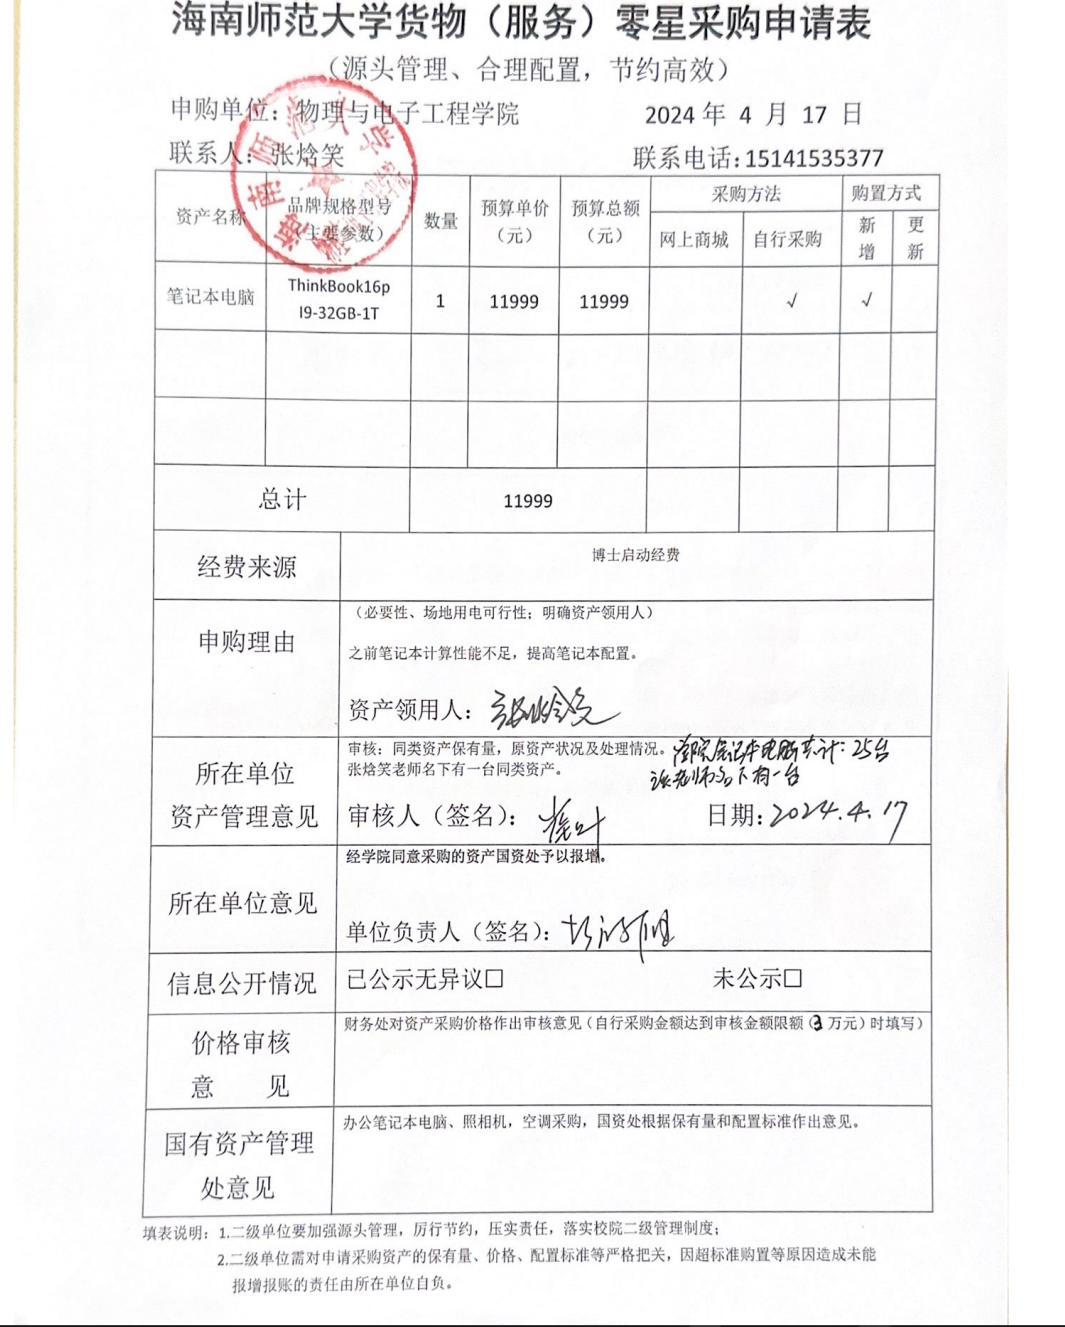 海南师范大学货物（服务）零星采购申请表
（源头管理、合理配置，节约高效）
申购单位：物理与电子工程学院 2024 年 4 月 17 日
联系人：张焓笑 联系电话:15141535377
资产名称 品牌规格型号（主要参数） 数量 预算单价（元） 预算总额（元） 采购方法 购置方式
网上商城 自行采购 新增 更新
笔记本电脑 ThinkBook16p 1 11999 11999 √ √
I9-32GB-1T
总计 11999
经费来源 博士启动经费
申购理由 （必要性、场地用电可行性；明确资产领用人）
之前笔记本计算性能不足，提高笔记本配置。
资产领用人：张焓笑
所在单位
资产管理意见
审核：同类资产保有量，原资产状况及处理情况。 笔记本电脑共计：25台
张焓笑老师名下有一台同类资产。 该老师名下有一台
审核人（签名）： 日期:2024.4.17
所在单位意见 经学院同意采购的资产国资处予以报增。
单位负责人（签名）：
信息公开情况 已公示无异议□ 未公示□
价格审核
意 见
财务处对资产采购价格作出审核意见（自行采购金额达到审核金额限额（3 万元）时填写）
国有资产管理
处意见
办公笔记本电脑、照相机，空调采购，国资处根据保有量和配置标准作出意见。
填表说明：1.二级单位要加强源头管理，厉行节约，压实责任，落实校院二级管理制度；
2.二级单位需对申请采购资产的保有量、价格、配置标准等严格把关，因超标准购置等原因造成未能
报增报账的责任由所在单位自负。
海南师范大学